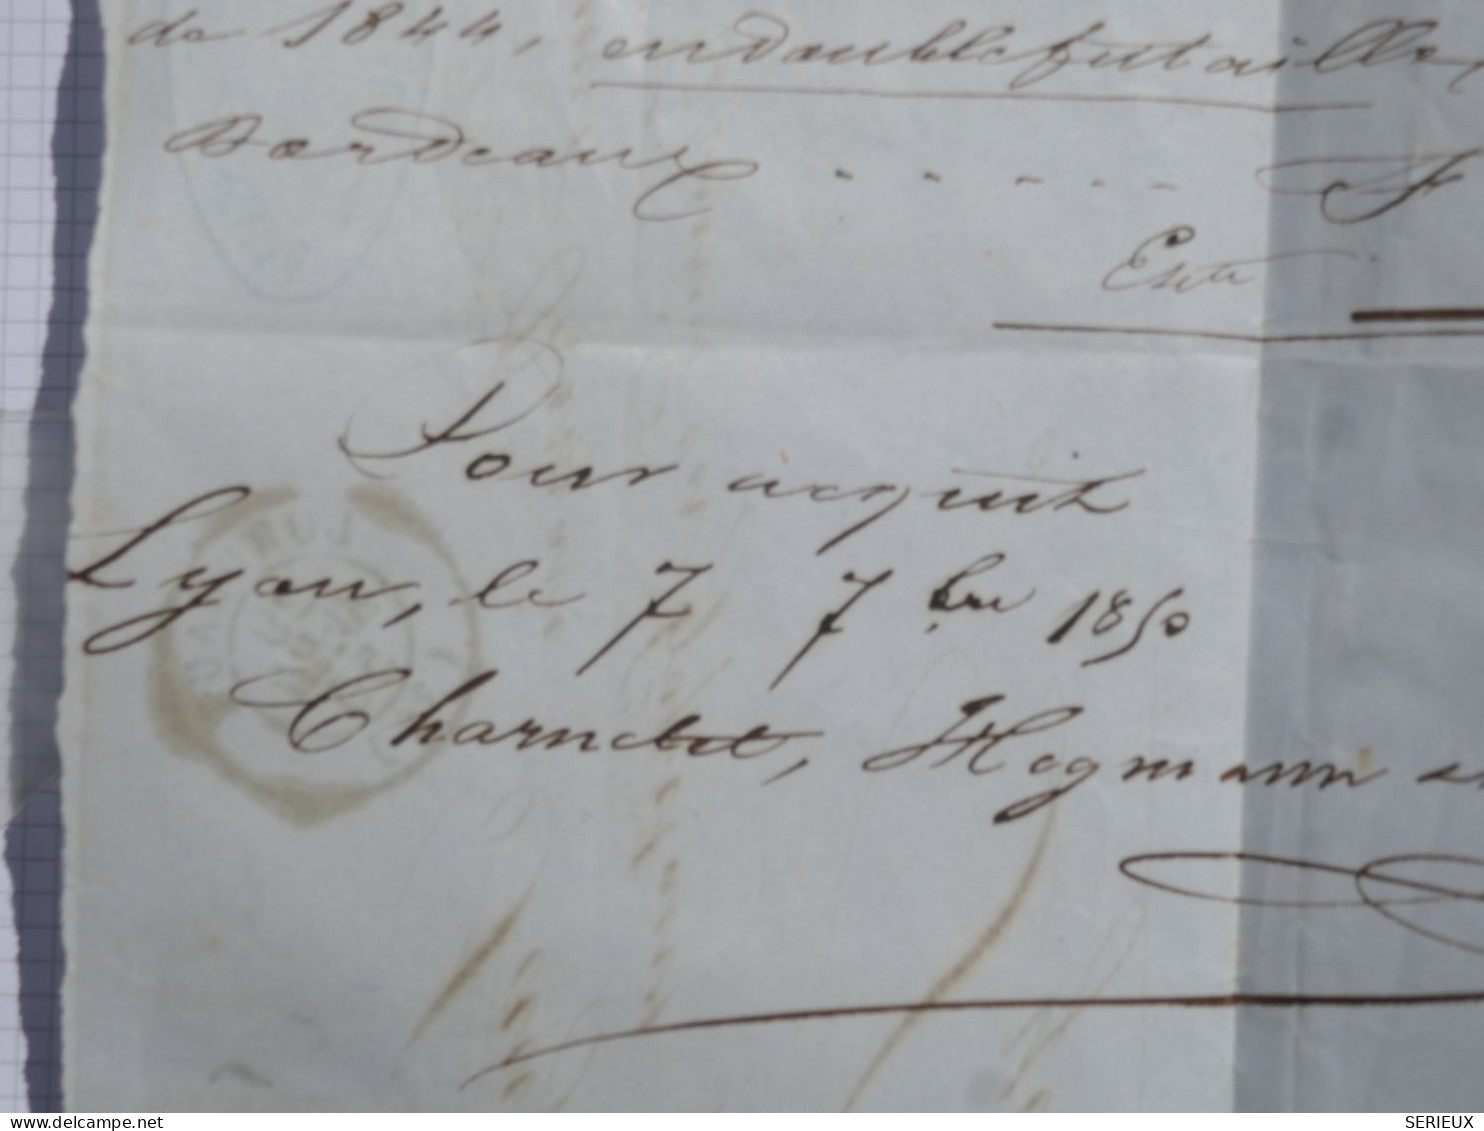 de 1844, en double futaille,
Bordeaux ..... F
Escte
Pour acquit
Lyon, le 7 7bre 1850
Charnetet, Hogmann
SERIEUX